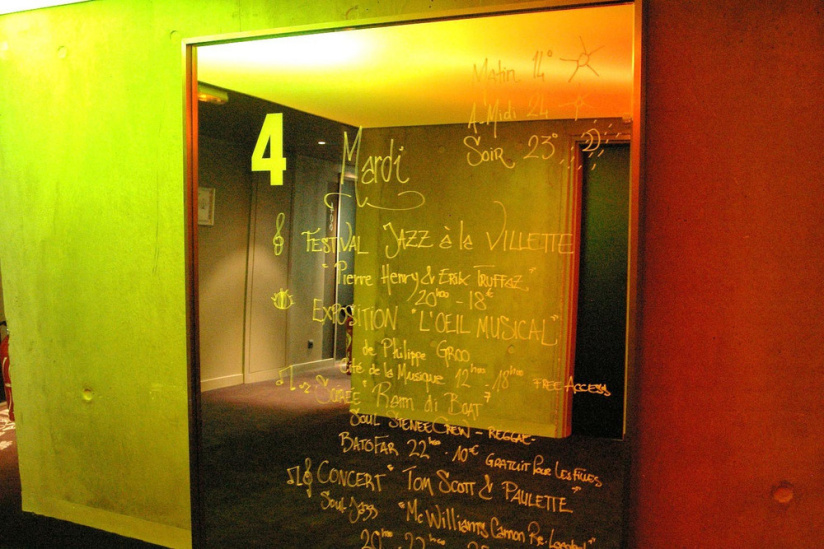 Matin 14°
4
A-Midi 24
Mardi
Soir 23°
FESTIVAL JAZZ à la VILLETTE
"Pierre Henry & Erik TRUFFAZ"
20h00 - 18€
EXPOSITION "L'OEIL MUSICAL"
de Philippe GROO
Cité de la Musique 12h00 - 18h00 FREE ACCESS
SOIRÉE "Ram di Boat"
SOUL STEREO CREW - REGGAE -
BATOFAR 22h00 - 10€ GRATUIT POUR LES FILLES
CONCERT "TOM SCOTT & PAULETTE"
Soul-Jazz "Mc Williams
20h00 - 22h00